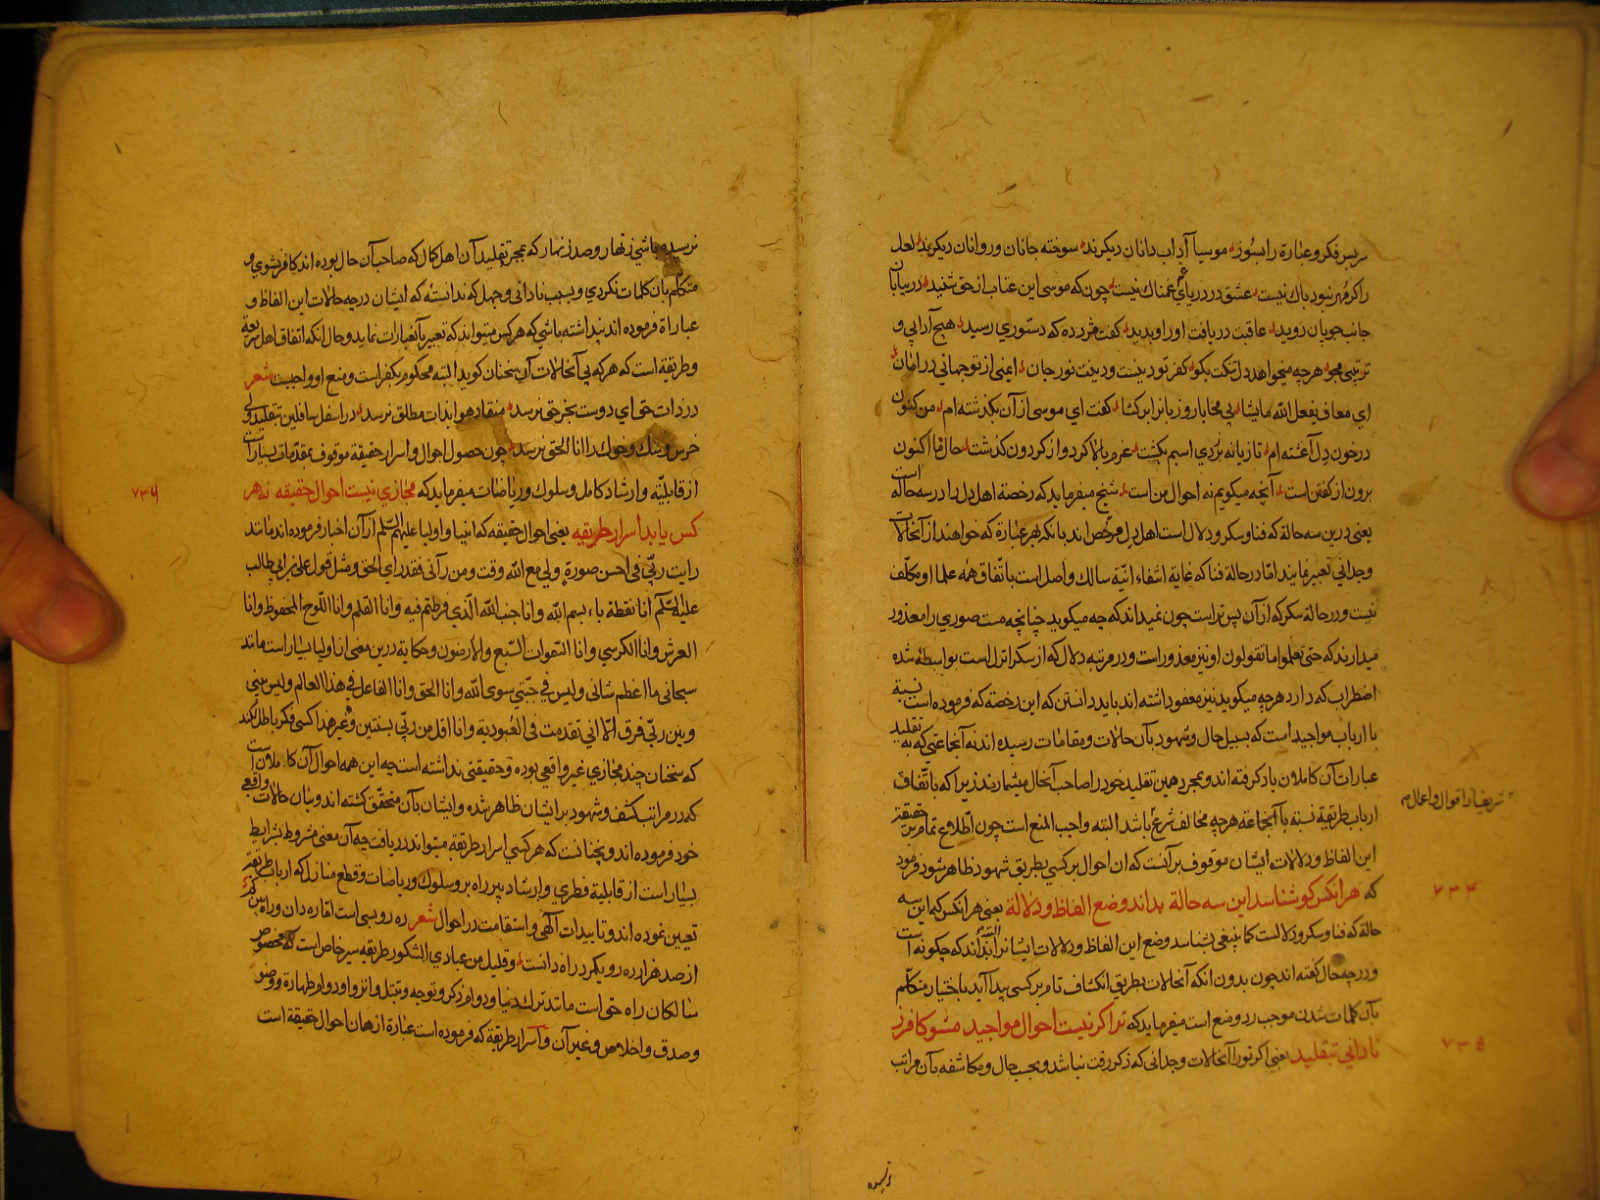 سربسر فکر و عبارة را بسوز موسیا آداب دانان دیکرند سوخته جانان و روانان دیکرند لعل
را کر مهر نبود باك نیست عشق در دریای غم غمناك نیست چون که موسی این عتاب از حق شنید در بیابان
جانب چوپان دوید عاقبت دریافت اورا و بدید کفت مژده ده که دستوری رسید هیچ آدابی و
ترتیبی مجو هرچه میخواهد دل تنکت بکو کفر تو دینست و دینت نور جان ایمنی از تو جهانی در امان
ای معاف یفعل الله مایشا بی محابا رو زبانرا برکشا کفت ای موسی از آن بکذشته ام من کنون
در خون دل آغشته ام تازیانه بزدی اسبم بکشت عزم بالا کرد و از کردون کذشت حال ما اکنون
برون از کفتن است آنچه میکویم نه احوال من است شیخ میفرماید که رخصة اهل دل را در سه حاله است
یعنی درین سه حالة که فنا و سکر و دلال است اهل دل مرخص اند بانکه بهر عبارة که خواهند از آنحالات
وجدانی تعبیر نمایند اما در حالة فنا که غایة انتفاء انیة سالك واصل است باتفاق همه علما او مکلف
نیست و در حالة سکر که از آن پس تر است چون نمیداند که چه میکوید چنانچه مست صوری را معذور
میدارند که حتی تعلموا ما تقولون او نیز معذور است و در مرتبه دلال که از سکر انزل است بواسطه شده
اضطراب که دارد هرچه میکوید نیز معفو داشته اند باید دانستن که این رخصة که فرموده است نسبة
با ارباب مواجید است که بسبیل حال و شهود بآن حالات و مقامات رسیده اند نه آنجماعتی که به تقلید
عبارات آن کاملون یاد کرفته اند و بمجرد همین تقلید خود را صاحب آنحال میشمارند زیرا که باتفاق
ارباب طریقة نسبة بآنجماعة هرچه مخالف شرع باشد البته واجب المنع است چون اطلاع تمام بر حقیقة
شریفه را اقوال و اعمال م
این الفاظ و دلالات ایشان موقوف بر آنست که ان احوال بر کسی بطریق شهود ظاهر شود فرمود
که هر انکس کو شناسد این سه حالة بداند وضع الفاظ و دلالة یعنی هر انکس که این سه
۷۳۴
حالة که فنا و سکر و دلالست کما ینبغی بشناسد وضع این الفاظ و دلالات ایشانرا البته داند که چکونه است
و در چه حال کفته اند چون بدون انکه آنحالات بطریق انکشاف تام بر کسی پیدا آید باختیار متکلم
بآن کلمات شدن موجب رد وضع است میفرماید که ترا کر نیست احوال مواجید مشو کافر ز
نادانی بتقلید یعنی اکر ترا آنحالات وجدانی که ذکر رفت نباشد و بحسب حال و مکاشفه بآن مراتب
۷۳۵
نرسیده
نرسیده باشی زنهار و صد زنهار که بمجر تقلید آن اهل کمال که صاحب آن حال بوده اند کافر نشوی و
متکلم بآن کلمات نکردی و بسبب نادانی و جهل که ندانستهٔ که ایشان در چه حالات این الفاظ و
عباراة فرموده اند پنداشته باشی که هرکس میتواند که تعبیر بآنعبارات نماید و حال انکه اتفاق اهل شریعة
و طریقة است که هرکه بی آنحالات آن سخنان کوید البته محکوم بکفر است و منع او واجبست شعر
در ذات حق ای دوست بجز حق نرسد منقاد هوا بذات مطلق نرسد در اسفل سافلین تقلید ولی
خرس و سك و خوك را انا الحق نرسد چون حصول احوال و اسرار حقیقة موقوف بمقدمات بسیار است
از قابلیة و ارشاد کامل و سلوك و ریاضات میفرماید که مجازی نیست احوال حقیقه نه هر
۷۳۶
کس یابد اسرار طریقه یعنی احوال حقیقه که انبیا و اولیا علیهم السلم از آن اخبار فرموده اند مانند
رایت ربی فی احسن صورة ولی مع الله وقت و من رآنی فقد رای الحق و مثل قول علی بن ابی طالب
علیه السلم انا نقطة باء بسم الله وانا جنب الله الذی فرطتم فیه وانا القلم وانا اللوح المحفوظ وانا
العرش وانا الکرسی وانا السموات السبع والارضون و حکایة درین معنی از اولیا بسیار است مانند
سبحانی ما اعظم شانی و لیس فی جبتی سوی الله وانا الحق وانا الفاعل فی هذا العالم و لیس بینی
و بین ربی فرق الا انی تقدمت فی العبودیة وانا اقل من ربی بسنتین و غیر هذا کسی فکر باطل نکند
که سخنان چند مجازی غیر واقعی بوده و حقیقتی نداشته است چه این همه احوال آن کاملان است
که در مراتب کشف و شهود بر ایشان ظاهر شده و ایشان بآن متحقق کشته اند و بیان حالات واقعی
خود فرموده اند و نچنانست که هر کسی اسرار طریقه میتواند دریافت چه آن معنی مشروط بشرایط
بسیار است از قابلیة فطری و ارشاد پیر راه برو سلوك و ریاضات و قطع منازل که ارباب طریقة
تعیین نموده اند و تاییدات آلهی و استقامت در احوال شعر ره رو بسی است اما ره دان و راه بین کم
از صد هزار ره رو یکمرد راه دانست و قلیل من عبادی الشکور طریقه سیر خاص است که مخصوص
سالکان راه حق است مانند ترك دنیا و دوام ذکر و توجه و تبتل و انزوا و دوام طهارة و وضو
و صدق و اخلاص و غیر آن و اسرار طریقة که فرموده است عبارة از همان احوال حقیقة است